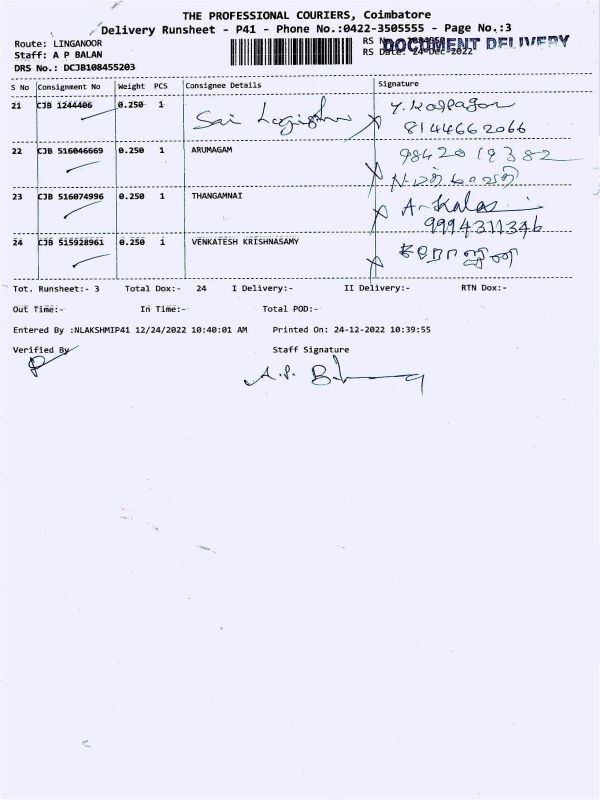 THE PROFESSIONAL COURIERS, Coimbatore
Delivery Runsheet - P41 - Phone No.:0422-3505555 - Page No.:3
Route: LINGANOOR
RS No.
DOCUMENT DELIVERY
Staff: A P BALAN
RS Date: 24-Dec-2022
DRS No.: DCJB108455203
S No Consignment No Weight PCS Consignee Details Signature
21 CJB 1244406 0.250 1 Sai
8144662066
22 CJB 516046669 0.250 1 ARUMAGAM 9842019382
23 CJB 516074996 0.250 1 THANGAMNAI A-Kalas
9994311346
24 CJB 515928961 0.250 1 VENKATESH KRISHNASAMY
Tot. Runsheet:- 3 Total Dox:- 24 I Delivery:- II Delivery:- RTN Dox:-
Out Time:- In Time:- Total POD:-
Entered By :NLAKSHMIP41 12/24/2022 10:40:01 AM Printed On: 24-12-2022 10:39:55
Verified By Staff Signature
A.P.